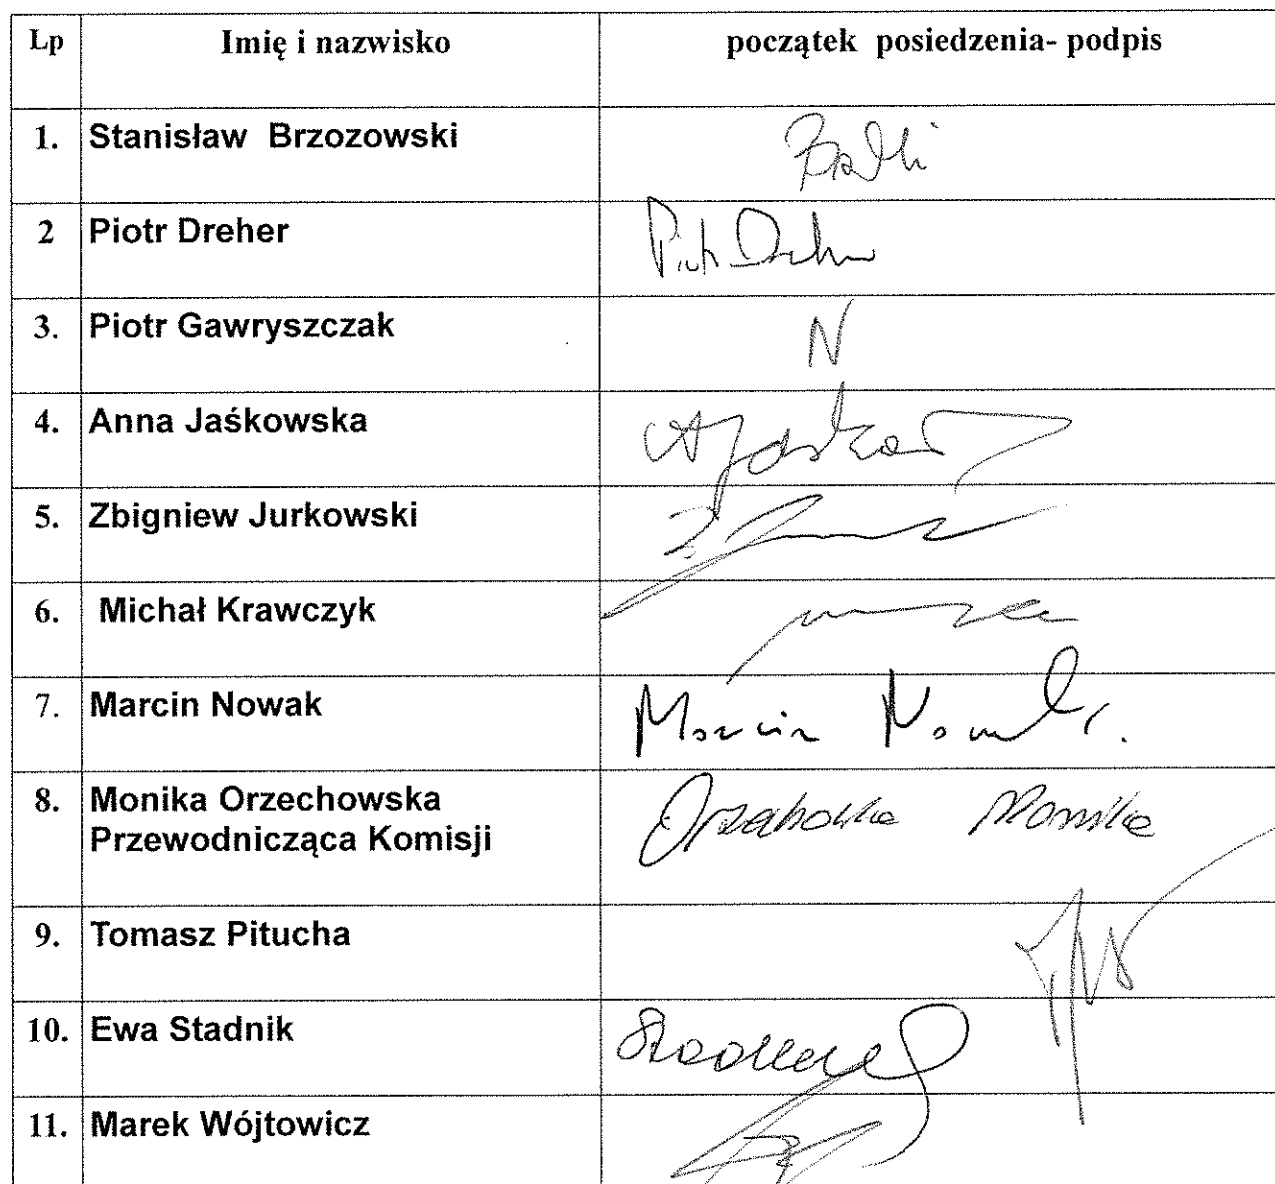 Lp Imię i nazwisko początek posiedzenia- podpis
1. Stanisław Brzozowski
2 Piotr Dreher Piotr Dreher
3. Piotr Gawryszczak N
4. Anna Jaśkowska
5. Zbigniew Jurkowski
6. Michał Krawczyk
7. Marcin Nowak Marcin Nowak
8. Monika Orzechowska Orzechowska Monika
Przewodnicząca Komisji
9. Tomasz Pitucha
10. Ewa Stadnik
11. Marek Wójtowicz